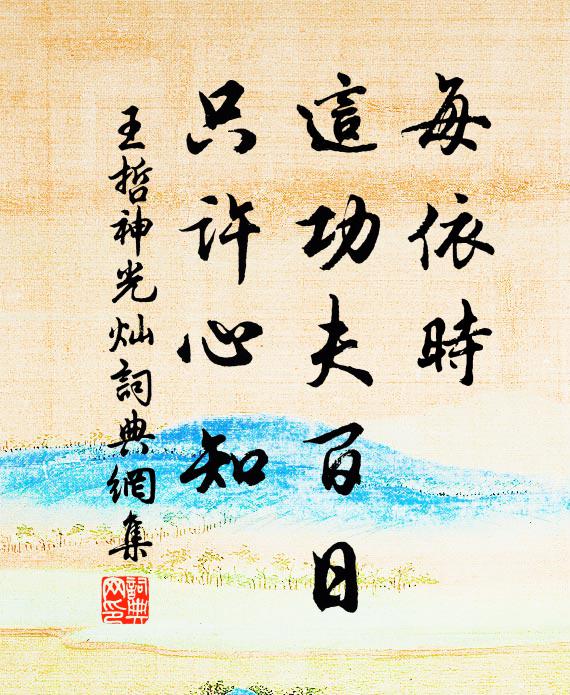 每依時
這功夫百日
只許心知
王哲神光灿詞典網集